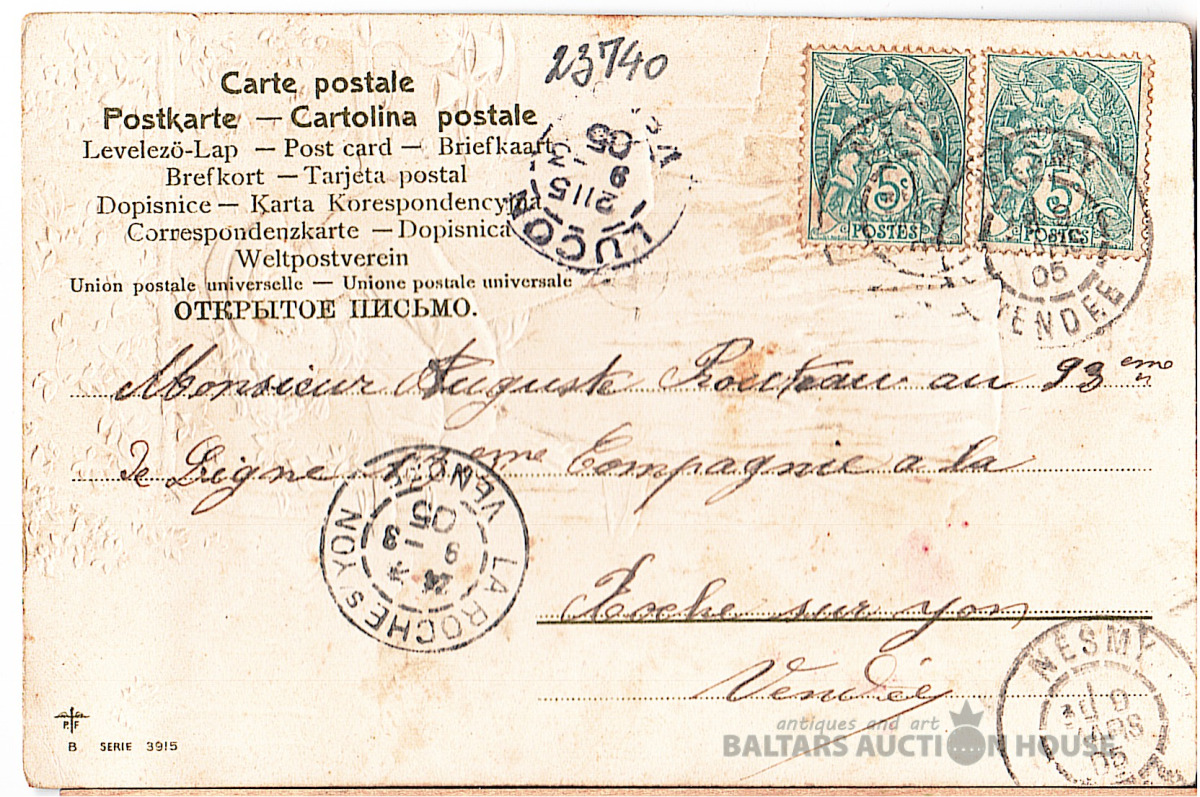 23740
Carte postale
Postkarte — Cartolina postale
Levelezö-Lap — Post card — Briefkaart
Brefkort — Tarjeta postal
Dopisnice — Karta Korespondencyjna
Correspondenzkarte — Dopisnica
Weltpostverein
Union postale universelle — Unione postale universale
ОТКРЫТОЕ ПИСЬМО.
LUÇON
05
5 c
POSTES
5 c
POSTES
NESMY
05
VENDEE
Monsieur Auguste au 93eme
de Ligne eme Compagnie a la
Roche sur yon
Vendée
LA ROCHE S/YON
VENDÉE
9 - 3
05
NESMY
MARS
05
P. F
B SERIE 3915
antiques and art
BALTARS AUCTION HOUSE